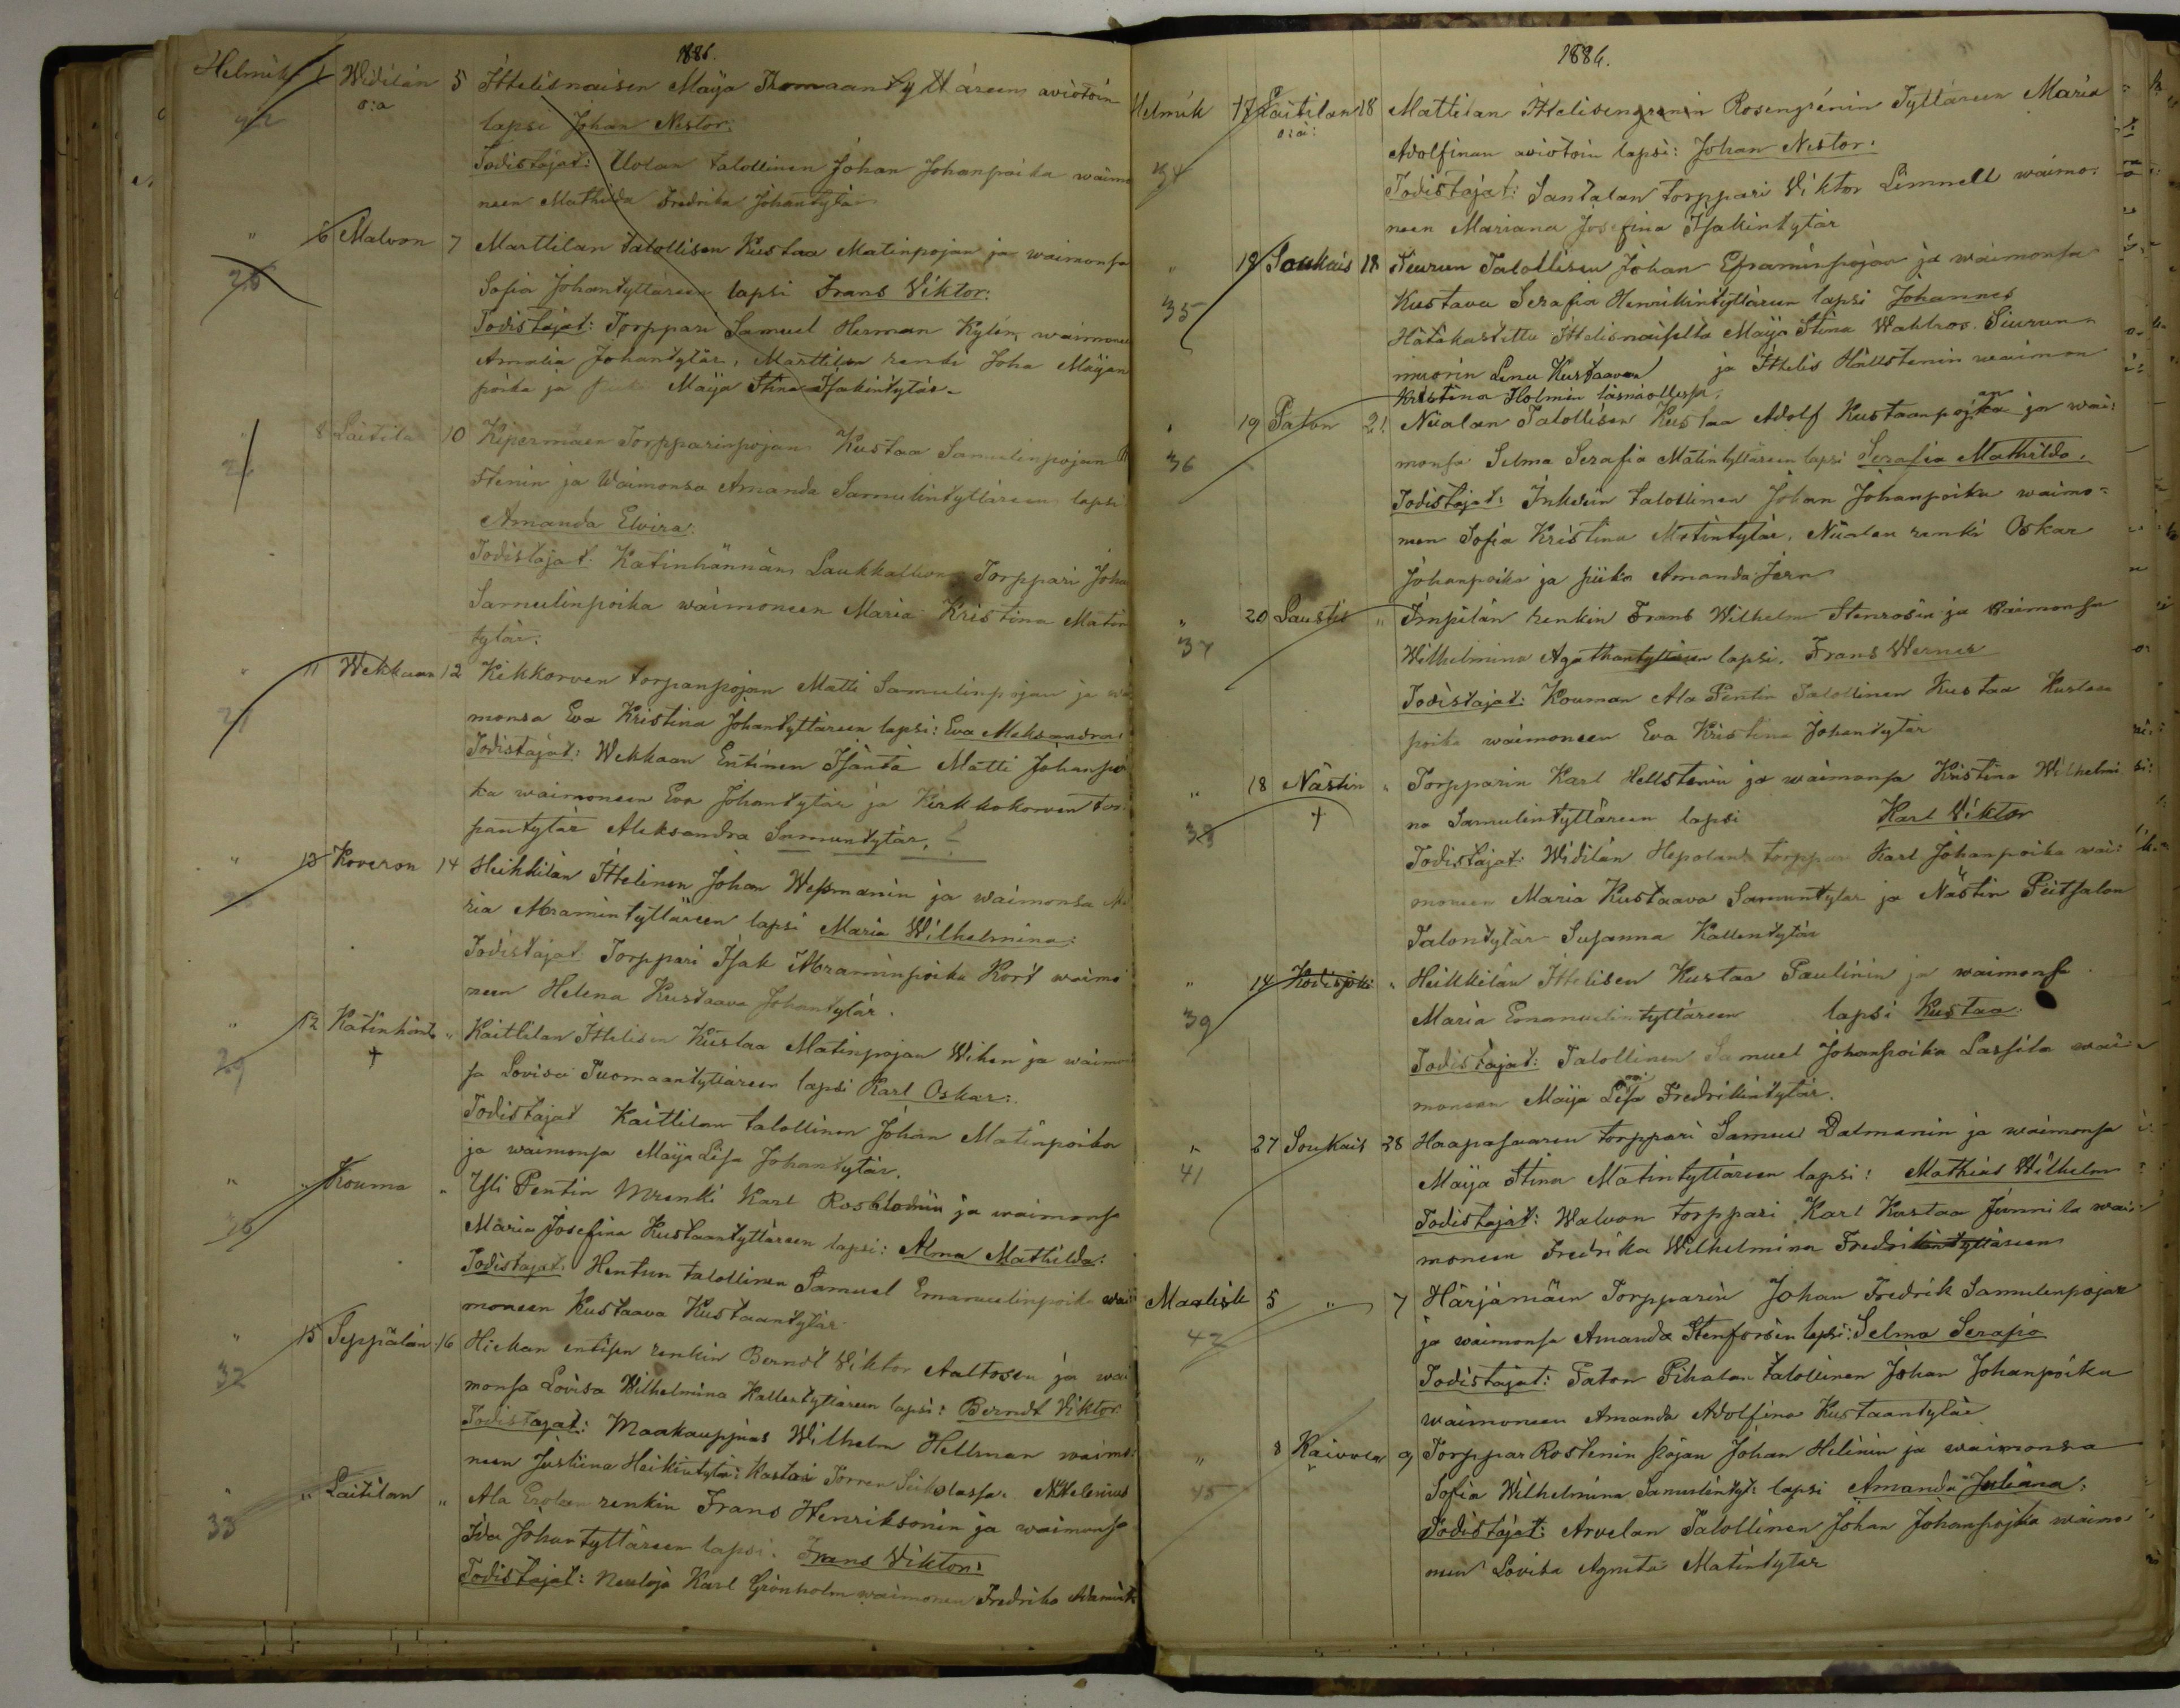 1886.
Helmik 1 Widilän 5 Ittelisnaisen Maija Tomaantyttäreen aviotoin
o:a lapsi Johan Nestor.
Todistajat: Uolan talollinen Johan Johanpoika waimo
neen Mathilda Fredrika Johantytär
" 6 Malvon 7 Marttilan talollisen Kustaa Matinpojan ja waimonsa
Sofia Johantyttäreen lapsi Frans Viktor:
Todistajat: Torppari Samuel Herman Kylén, waimoneen
Amalia Johantytär, Marttilan renki Joha Maijan
poika ja piika Maija Stina Isakintytär.
" 8 Laitila 10 Kipermäen Torpparinpojan Kustaa Samulinpojan
stenin ja Waimonsa Amanda Samulintyttäreen lapsi
26 Amanda Elvira:
Todistajat. Katinhännän Laukkallion Torppari Joha
Samulinpoika waimoneen Maria Kristina Matin
tytär.
" 11 Wekkaan 12 Kikkorven torpanpojan Matti Samulinpojan ja wai
monsa Eva Kristina Johantyttäreen lapsi: Eva Aleksandra:
Todistajat: Wekkaan Entinen Isäntä Matti Johanpoi
ka waimoneen Eva Johantytär ja Kirkkokorven tor
pantytär Aleksandra Samuntytär.
" 13 Koveron 14 Heikkilän Ittelinen Johan Wessmanin ja waimonsa Ma
ria Abramintyttäreen lapsi Maria Wilhelmina:
Todistajat. Torppari Isak Abraminpoika Kort waimo
neen Helena Kustaava Johantytär.
" 12 Katinhänt " Kaittilan Ittelisen Kustaa Matinpojan Wiken ja waimon
† sa Lovisa Tuomaantyttäreen lapsi Karl Oskar:
29 Todistajat Kaittilan talollinen Johan Matinpoika
ja waimonsa Maija Lisa Johantytär.
" " Kouma " Yli Pentin renki Karl Roslundin ja waimonsa
30 Maria Josefina Kustaantyttäreen lapsi: Alma Mathilda:
Todistajat. Hentun talollinen Samuel Emanuelinpoika wai
moneen Kustaava Kustaantytär
" 15 Seppälän 16 Hiekan entisen renkin Berndt Viktor Aaltosen ja wai
32 monsa Lovisa Wilhelmina Kallentyttäreen lapsi: Berndt Viktor.
Todistajat: Maakauppias Wilhelm Hellman waimo:
neen Justiina Heikintytär
" " Laitilan " Ala renkin Frans Henriksonin ja waimonsa
33 Ida Johantyttäreen lapsi. Frans Wiktor:
Todistajat: Neuloja Karl Grönholm waimoneen Fredrika
1886.
Helmik 17 Laitilan 18 Mattilan Ittelisen Rosengrénin Tyttäreen Maria
o:a: Adolfinan aviotoin lapsi: Johan Nestor.
34 Todistajat: Santalan torppari Viktor Limnell waimo:
neen Mariana Josefina Isakintytär
" 18 Soukais 18 Siurun Talollisen Johan Eframinpojan ja waimonsa
35 Kustava Serafia Henrikintyttäreen lapsi Johannes
Hätäkastettu Ittelisnaiselta Maija Stina Wahlroos. Siurun
muorin Lenu Kustaavan ja Ittelis Hällstenin waimon
Kristina Holmin läsnäollessa.
" 19 Paton 21 Niialan Talollisen Kustaa Adolf Kustaanpojan ja wai:
36 monsa Selma Serafia Matintyttäreen lapsi Serafia Mathilda.
Todistajat: Talollinen Johan Johanpoika waimo=
neen Sofia Kristina Matintytär, Niialan renki Oskar
Johanpoika ja piika Amanda Jern
" 20 Laustis " renkin Frans Wilhelm Stenrosin ja Waimonsa
37 Wilhelmina Agathantyttären lapsi. Frans Werner
Todistajat: Kouman Ala Pentin Talollinen Kustaa Kustaan
poika waimoneen Eva Kristina Johantytär
" 18 Nästin " Torpparin Karl Hellstenin ja waimonsa Kristina Wilhelmi
† na Samulintyttäreen lapsi Karl Viktor
38 Todistajat: Widilän Hepolan torppari Karl Johanpoika wai:
moneen Maria Kustaava Samuntytär ja Nästin Peitsalon
Talontytär Susanna Kallentytär
" 14 Kodisjoki " Heikkilän Ittelisen Kustaa Paulinin ja waimonsa
39 Maria Emanuelintyttäreen lapsi Kustaa:
Todistajat: Talollinen Samuel Johanpoika Lassila wai=
moneen Maija Lisa Fredrikintytär.
" 27 Soukais 28 Haapasaaren torppari Samuel Dalmanin ja waimonsa
41 Maija Stina Matintyttäreen lapsi: Mathias Wilhelm
Todistajat: Walvon torppari Karl Kustaa Junnila wai=
moneen Fredrika Wilhelmina Fredrikintyttäreen
Maalisk 5 " 7 Härjämäen Torpparin Johan Fredrik Samulinpojan
42 ja waimonsa Amanda Stenforsin lapsi: Selma Serafia
Todistajat: Paton Pihalan talollinen Johan Johanpoika
waimoneen Amanda Adolfina Kustaantytär
" 8 Kaivoin 9 Torppar Rostenin pojan Johan Helinin ja waimonsa
45 Sofia Wilhelmina Samulintyt: lapsi Amanda Juliana:
Todistajat: Arvelan Talollinen Johan Johanpojka waimo
neen Lovisa Agneta Matintytär